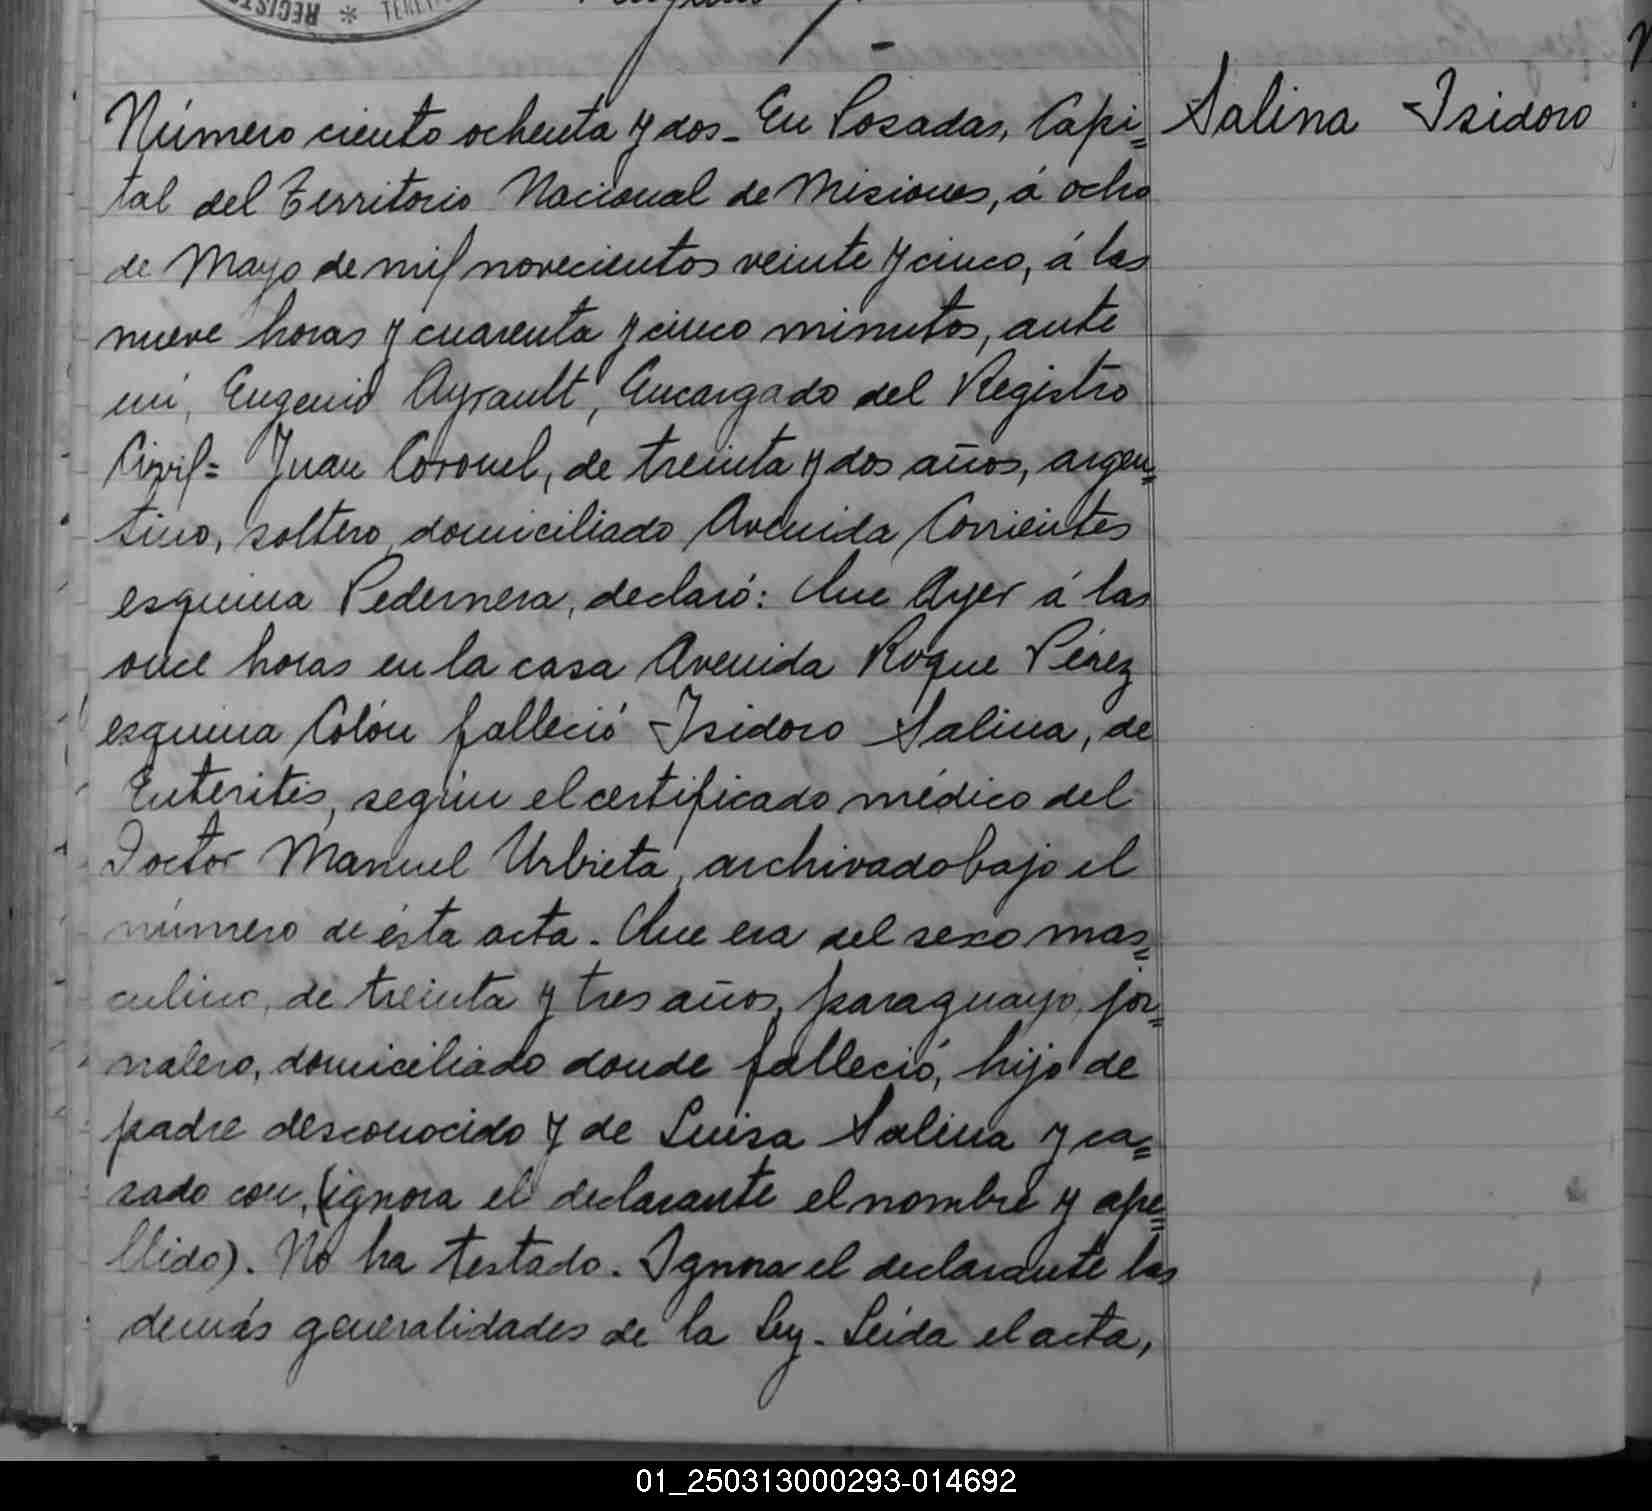 REGISTRO * TERRIT
Número ciento ochenta y dos_ En Posadas, Capi=
Salina Isidoro
tal del Territorio Nacional de Misiones, á ocho
de Mayo de mil novecientos veinte y cinco, á las
nueve horas y cuarenta y cinco minutos, ante
mi, Eugenio Ayrault, Encargado del Registro
Civil= Juan Coronel, de treinta y dos años, argen=
tino, soltero, domiciliado Avenida Corrientes
esquina Pedernera, declaró: Que Ayer á las
once horas en la casa Avenida Roque Pérez
esquina Colón falleció Isidoro Salina, de
Enteritis, según el certificado médico del
Doctor Manuel Urbieta, archivado bajo el
número de ésta acta. Que era del sexo mas=
culino, de treinta y tres años, paraguayo, jor=
nalero, domiciliado donde falleció, hijo de
padre desconocido y de Luisa Salina y ca=
sado con, (ignora el declarante el nombre y ape=
llido). No ha testado. Ignora el declarante las
demás generalidades de la Ley. Leída el acta,
01_250313000293-014692